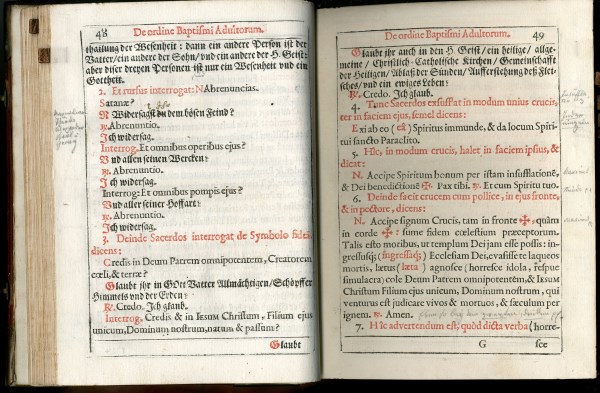 48
De ordine Baptismi Adultorum.
theilung der Wesenheit: dann ein andere Person ist der
Vatter/ ein andere der Sohn/ und ein andere der H. Geist:
aber diser dreyen Personen ist nur ein Wesenheit und ein
Gottheit.
2. Et rursus interrogat: N Abrenuncias.
Satanæ?
N Widersagst du dem bösen Feind?
℟. Abrenuntio.
Ich widersag.
Interrog. Et omnibus operibus ejus?
Und allen seinen Wercken?
℟. Abrenuntio.
Ich widersag.
Interrog: Et omnibus pompis ejus?
Und aller seiner Hoffart?
℟. Abrenuntio.
Ich widersag.
3. Deinde Sacerdos interrogat de Symbolo fidei,
dicens:
Credis in Deum Patrem omnipotentem, Creatorem
cœli, & terræ?
Glaubst ihr in GOtt Vatter Allmächtigen/ Schöpffer
Himmels und der Erden?
℟. Credo. Ich glaub.
Interrog. Credis & in IESUM Christum, Filium ejus
unicum, Dominum nostrum, natum & passum?
Glaubt
De ordine Baptismi Adultorum.
49
Glaubt ihr auch in den H. Geist/ ein heilige/ allge-
meine / Christlich-Catholische Kirchen/ Gemeinschafft
der Heiligen/ Ablaß der Sünden/ Aufferstehung des Flei-
sches/ und ein ewiges Leben?
℟. Credo. Ich glaub.
4. Tunc Sacerdos exsufflat in modum unius crucis,
ter in faciem ejus, semel dicens:
Exi ab eo (eâ) Spiritus immunde, & da locum Spiri-
tui sancto Paraclito.
5. Hîc, in modum crucis, halet in faciem ipsius, &
dicat:
N. Accipe Spiritum bonum per istam insufflationē,
& Dei benedictionē ✠. Pax tibi. ℟. Et cum Spiritu tuo.
6. Deinde facit crucem cum pollice, in ejus fronte,
& in pectore, dicens:
N. Accipe signum Crucis, tam in fronte ✠, quàm
in corde ✠: sume fidem cœlestium præceptorum.
Talis esto moribus, ut templum Dei jam esse possis: in-
gressusq; (ingressaq;) Ecclesiam Dei, evasisse te laqueos
mortis, lætus (læta) agnosce (horresce idola, respue
simulacra) cole Deum Patrem omnipotentem, & IESUM
Christum Filium ejus unicum, Dominum nostrum, qui
venturus est judicare vivos & mortuos, & sæculum per
ignem. ℟. Amen.
7. Hîc advertendum est, quòd dicta verba (horre-
G
sce